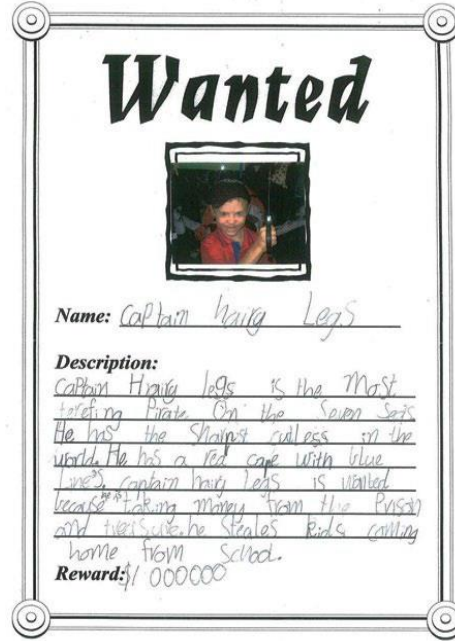 Wanted
Name: Captain hairy Legs
Description:
Captain Hrairy legs is the most
terefing Pirate On the Seven Seas
He has the Sharpest cutless in the
world. He has a red cape with blue
Lines. captain hairy Legs is wanted
because he is taking money from the Prison
and treisure. he steales kids coming
home from School.
Reward: $1 000000